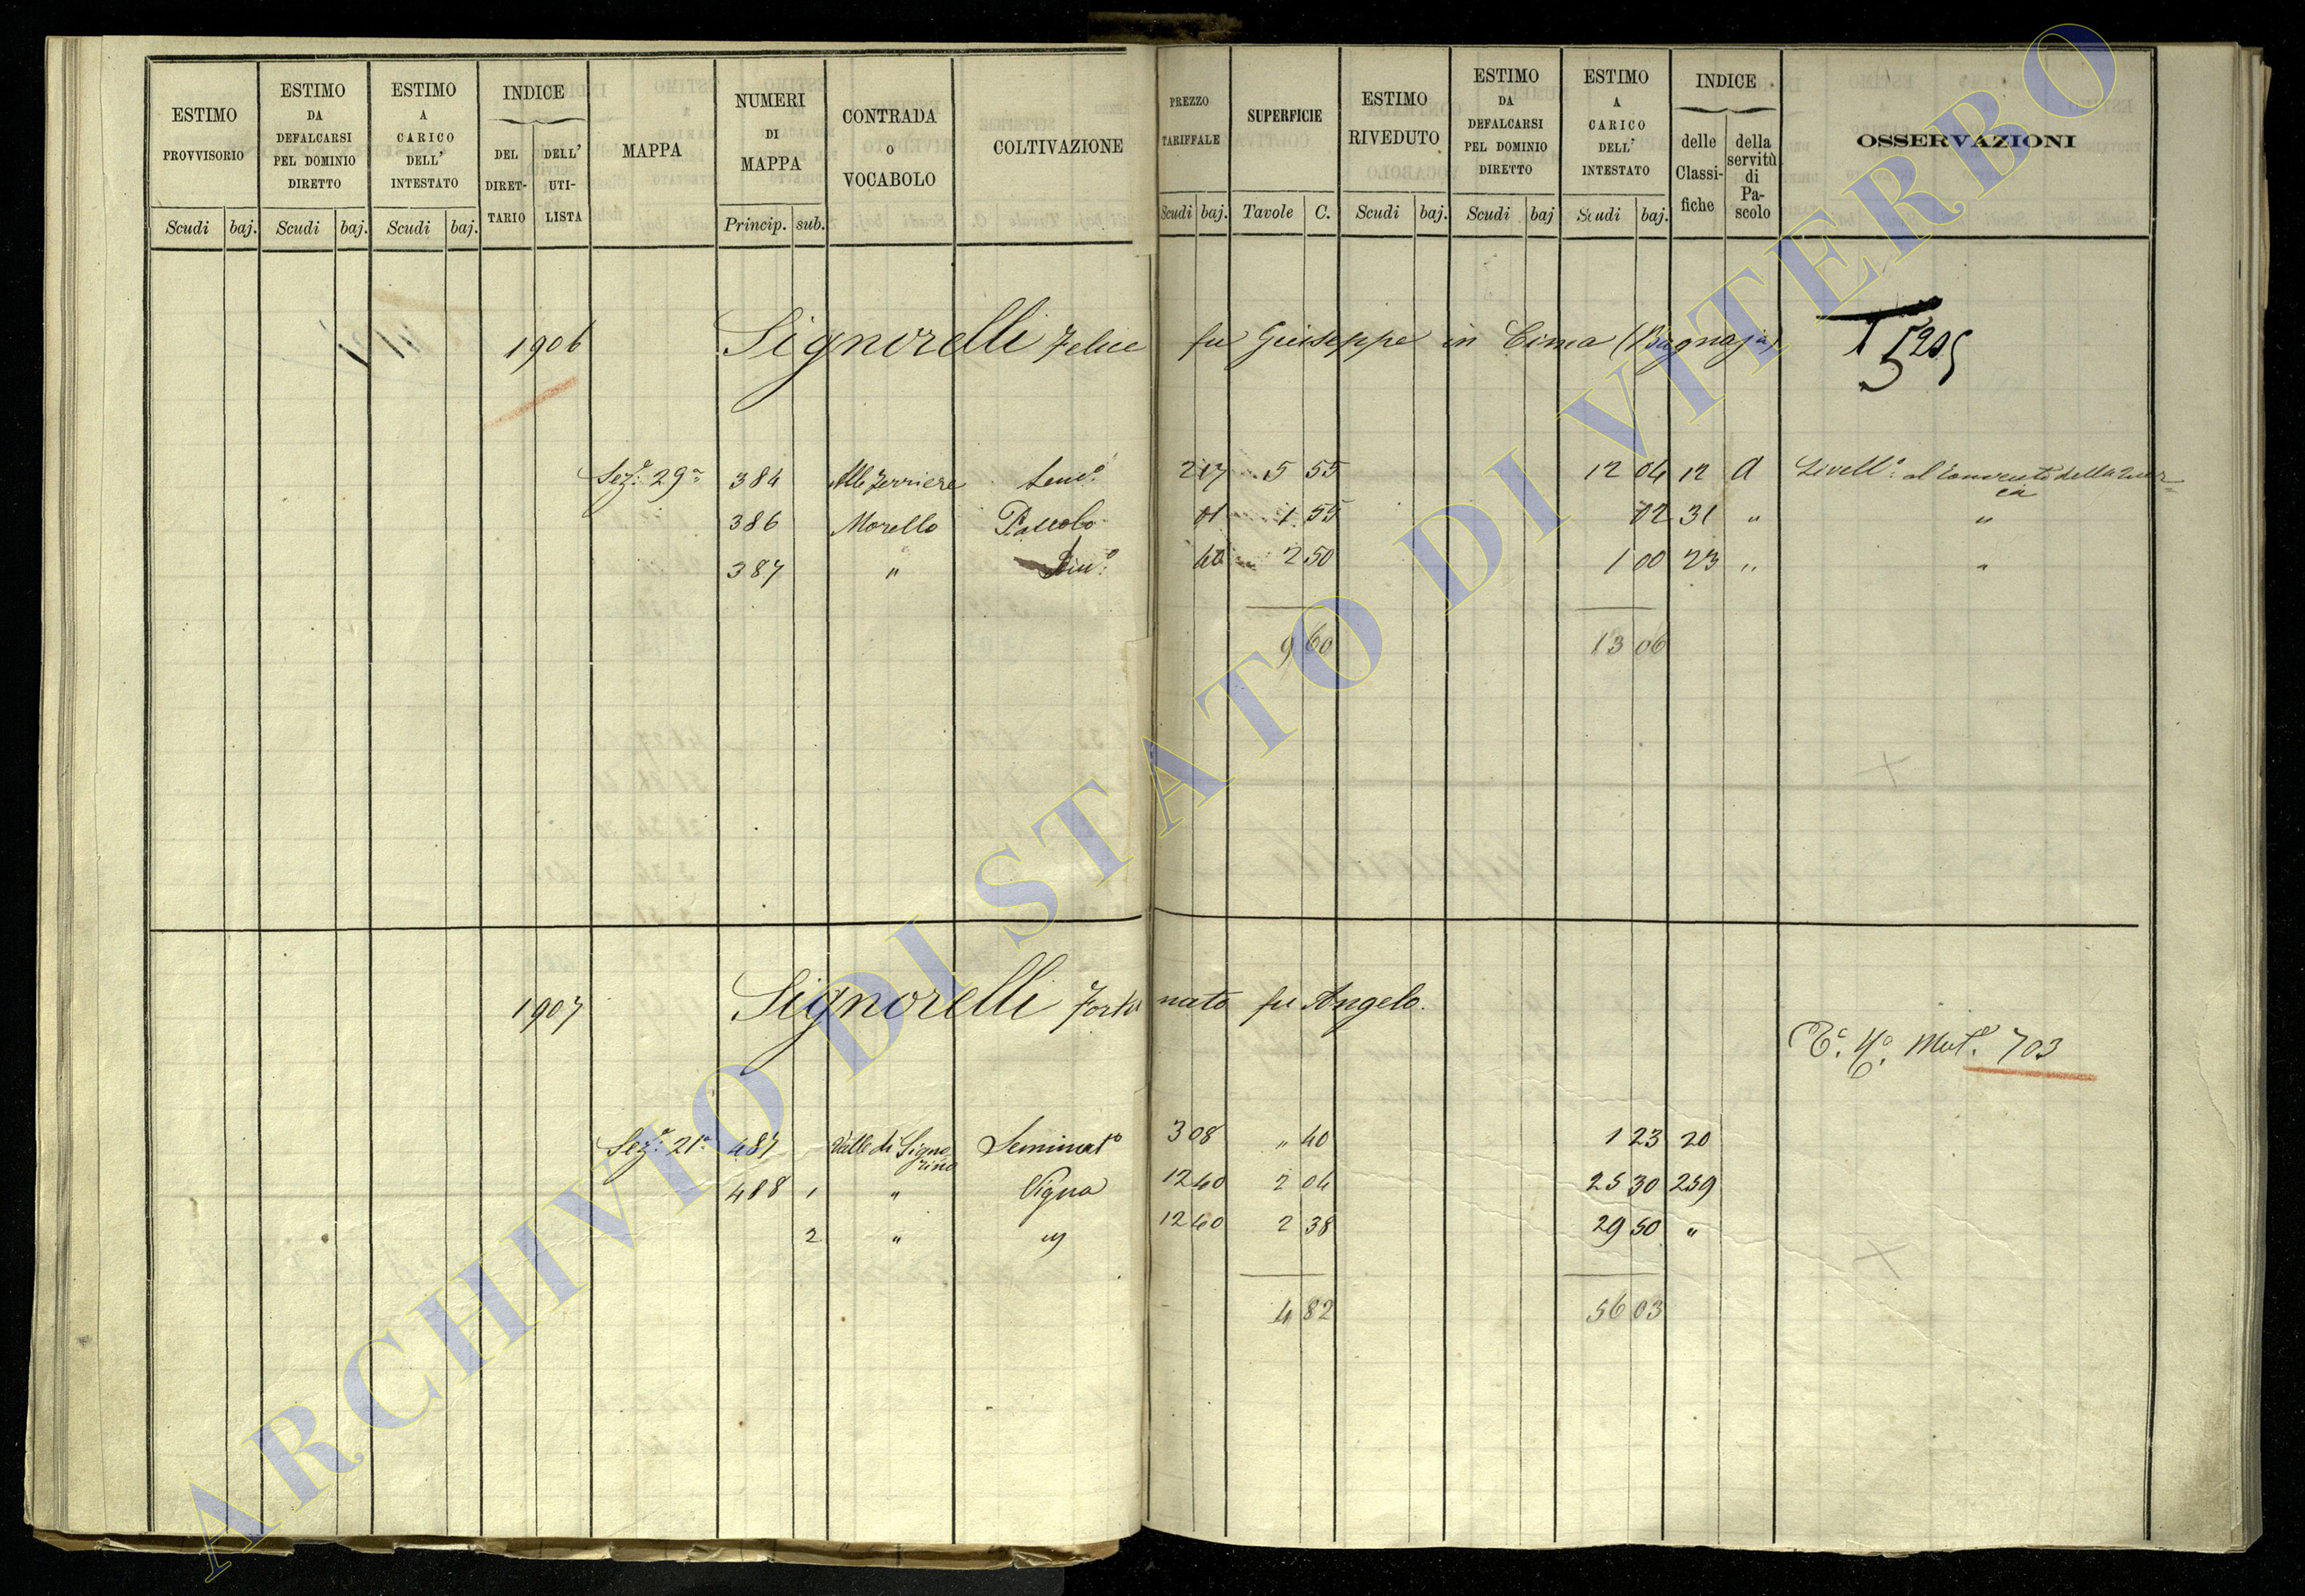 ESTIMO PROVVISORIO
ESTIMO DA DEFALCARSI PEL DOMINIO DIRETTO
ESTIMO A CARICO DELL' INTESTATO
INDICE
DEL DIRET-TARIO
DELL' UTI-LISTA
MAPPA
NUMERI DI MAPPA
CONTRADA O VOCABOLO
COLTIVAZIONE
PREZZO TARIFFALE
SUPERFICIE
ESTIMO RIVEDUTO
ESTIMO DA DEFALCARSI PEL DOMINIO DIRETTO
ESTIMO A CARICO DELL' INTESTATO
INDICE
delle Classi-fiche
della servitù di Pa-scolo
OSSERVAZIONI
Scudi baj. Scudi baj. Scudi baj. Princip. sub. Scudi baj. Tavole C. Scudi baj. Scudi baj Scudi baj.
1906 Signorelli Felice fu Giuseppe in Cima (Bagnaja)
5205
Sez.e 29a 384 Alle ferriere Sem.o 2 17 5 55 12 04 12 A Livell.o al Convento della Quer=
cia
386 Morello Pascolo 01 1 55 02 31 "
"
387 " Sem.o 40 2 50 1 00 23 " "
9 60 13 06
1907 Signorelli Fortunato fu Angelo.
Mut. 703
Sez.e 21a 487 Valle di Signo
rino Seminat.o 3 08 " 40 1 23 20
488 1 " Vigna 12 40 2 04 25 30 259
2 " " 12 40 2 38 29 50 "
4 82 56 03
ARCHIVIO DI STATO DI VITERBO